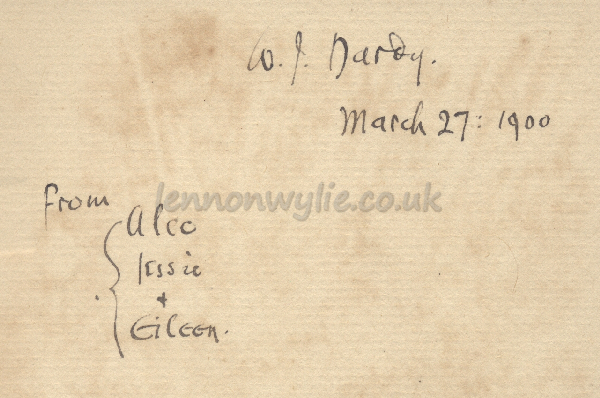 W. J. Dardy.
March 27: 1900
From
lennonwylie.co.uk
Alec
Jessie
+
Eileen.